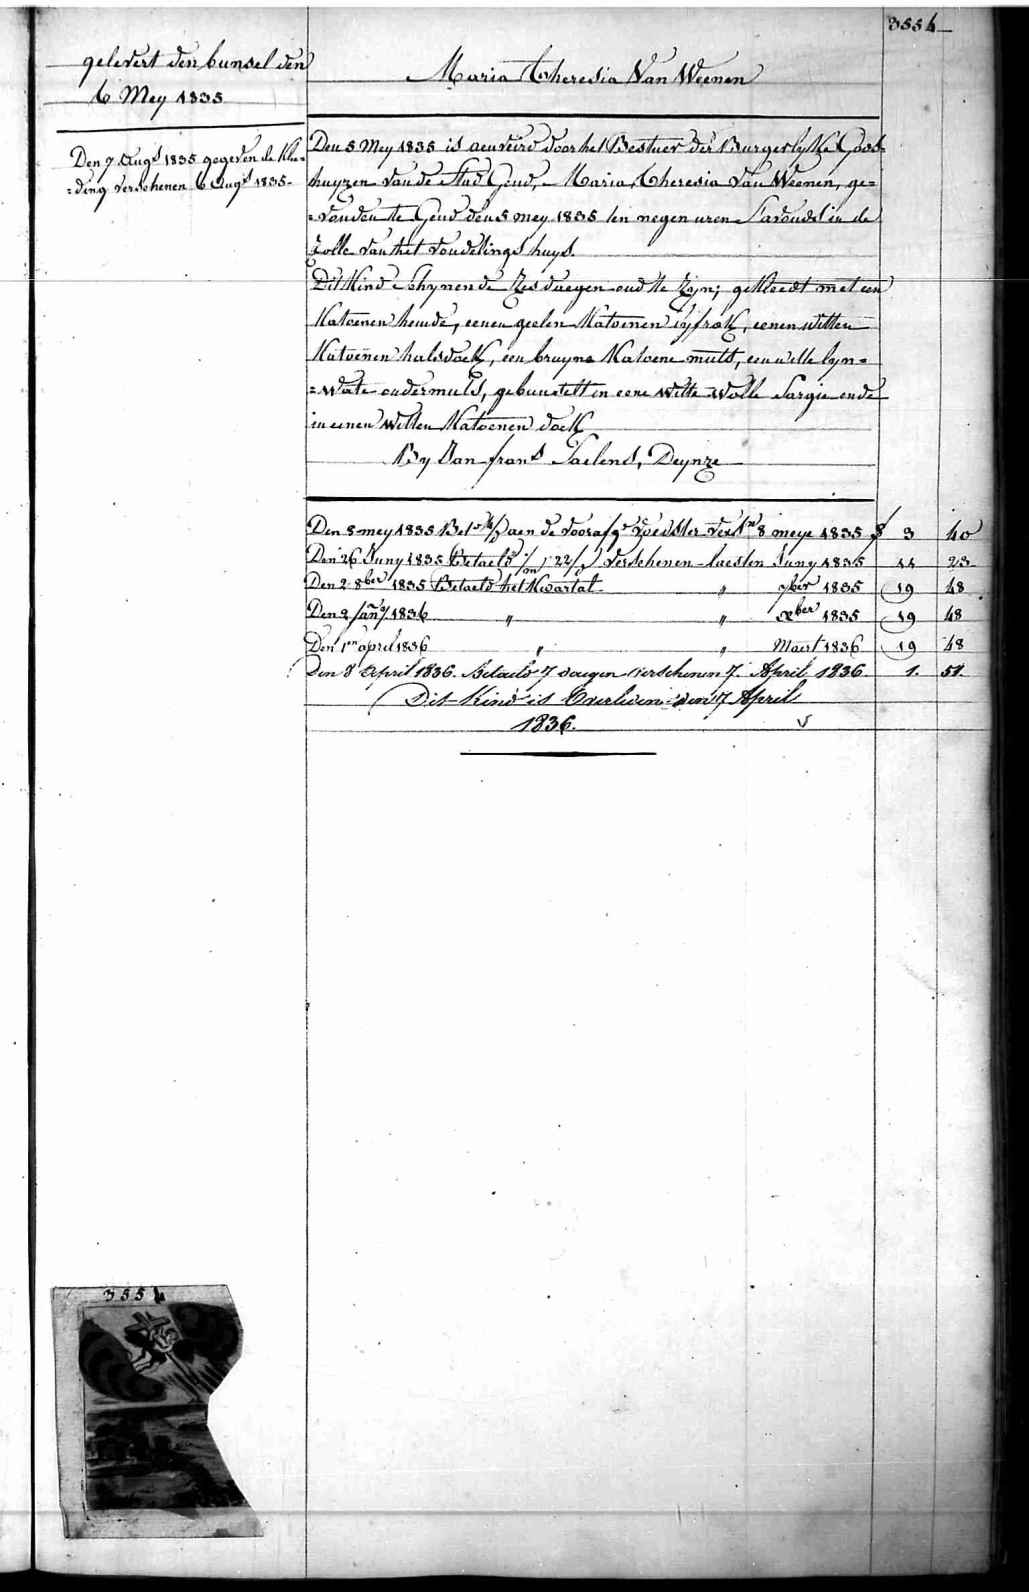 3554
gelevert den bunsel den
6 Mey 1835
Den 7 Augs 1835 gegeven de Klee=
=ding verschenen 6 Augs 1835-
Maria Theresia Van Weenen
Den 5 Mey 1835 is aenveird door het Bestuer der Burgerlyke Gods=
huyzen van de Stad Gend, Maria Theresia Van Weenen, ge=
=vonden te Gend den 5 mey 1835 ten negen uren s'avonds in de
rolle van het vondelings huys.
Dit Kind schynende zes daegen oud te zyn; gekleedt met een
Katoenen hemde, eenen geelen Katoenen lyfrok, eenen witten
Katoenen halsdoek, een bruyne Katoene muts, een witte lyn=
=wate ondermuts, gebunselt in eene witte wolle Sargie ende
in eenen witten Katoenen doek
By Van frans Taelens, Deynze
Den 8 mey 1835 Bet aen de voorafg voedster 8 meye 1835 3 40
Den 26 Juny 1835 Betaeld verschenen laesten Juny 1835 11 23
Den 2 8ber 1835 Betaeld het Kwartal " 7ber 1835 19 48
Den 2 Jany 1836 " " xber 1835 19 48
Den 1en april 1836 " " Maert 1836 19 48
Den 8 April 1836. Betaeld 7 daegen verschenen 7. April 1836. 1. 51.
Dit Kind is Overleden den 7 April
1836.
3554